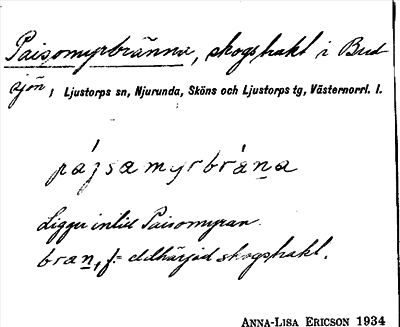 Paisomyrbränna, skogstrakt i Bred
sjön, Ljustorps sn, Njurunda, Sköns och Ljustorps tg, Västernorrl. l.
pájsamyrbràna
Ligger intid Paisomyran.
bran, f = eldhärjad skogstrakt.
ANNA-LISA ERICSON 1934